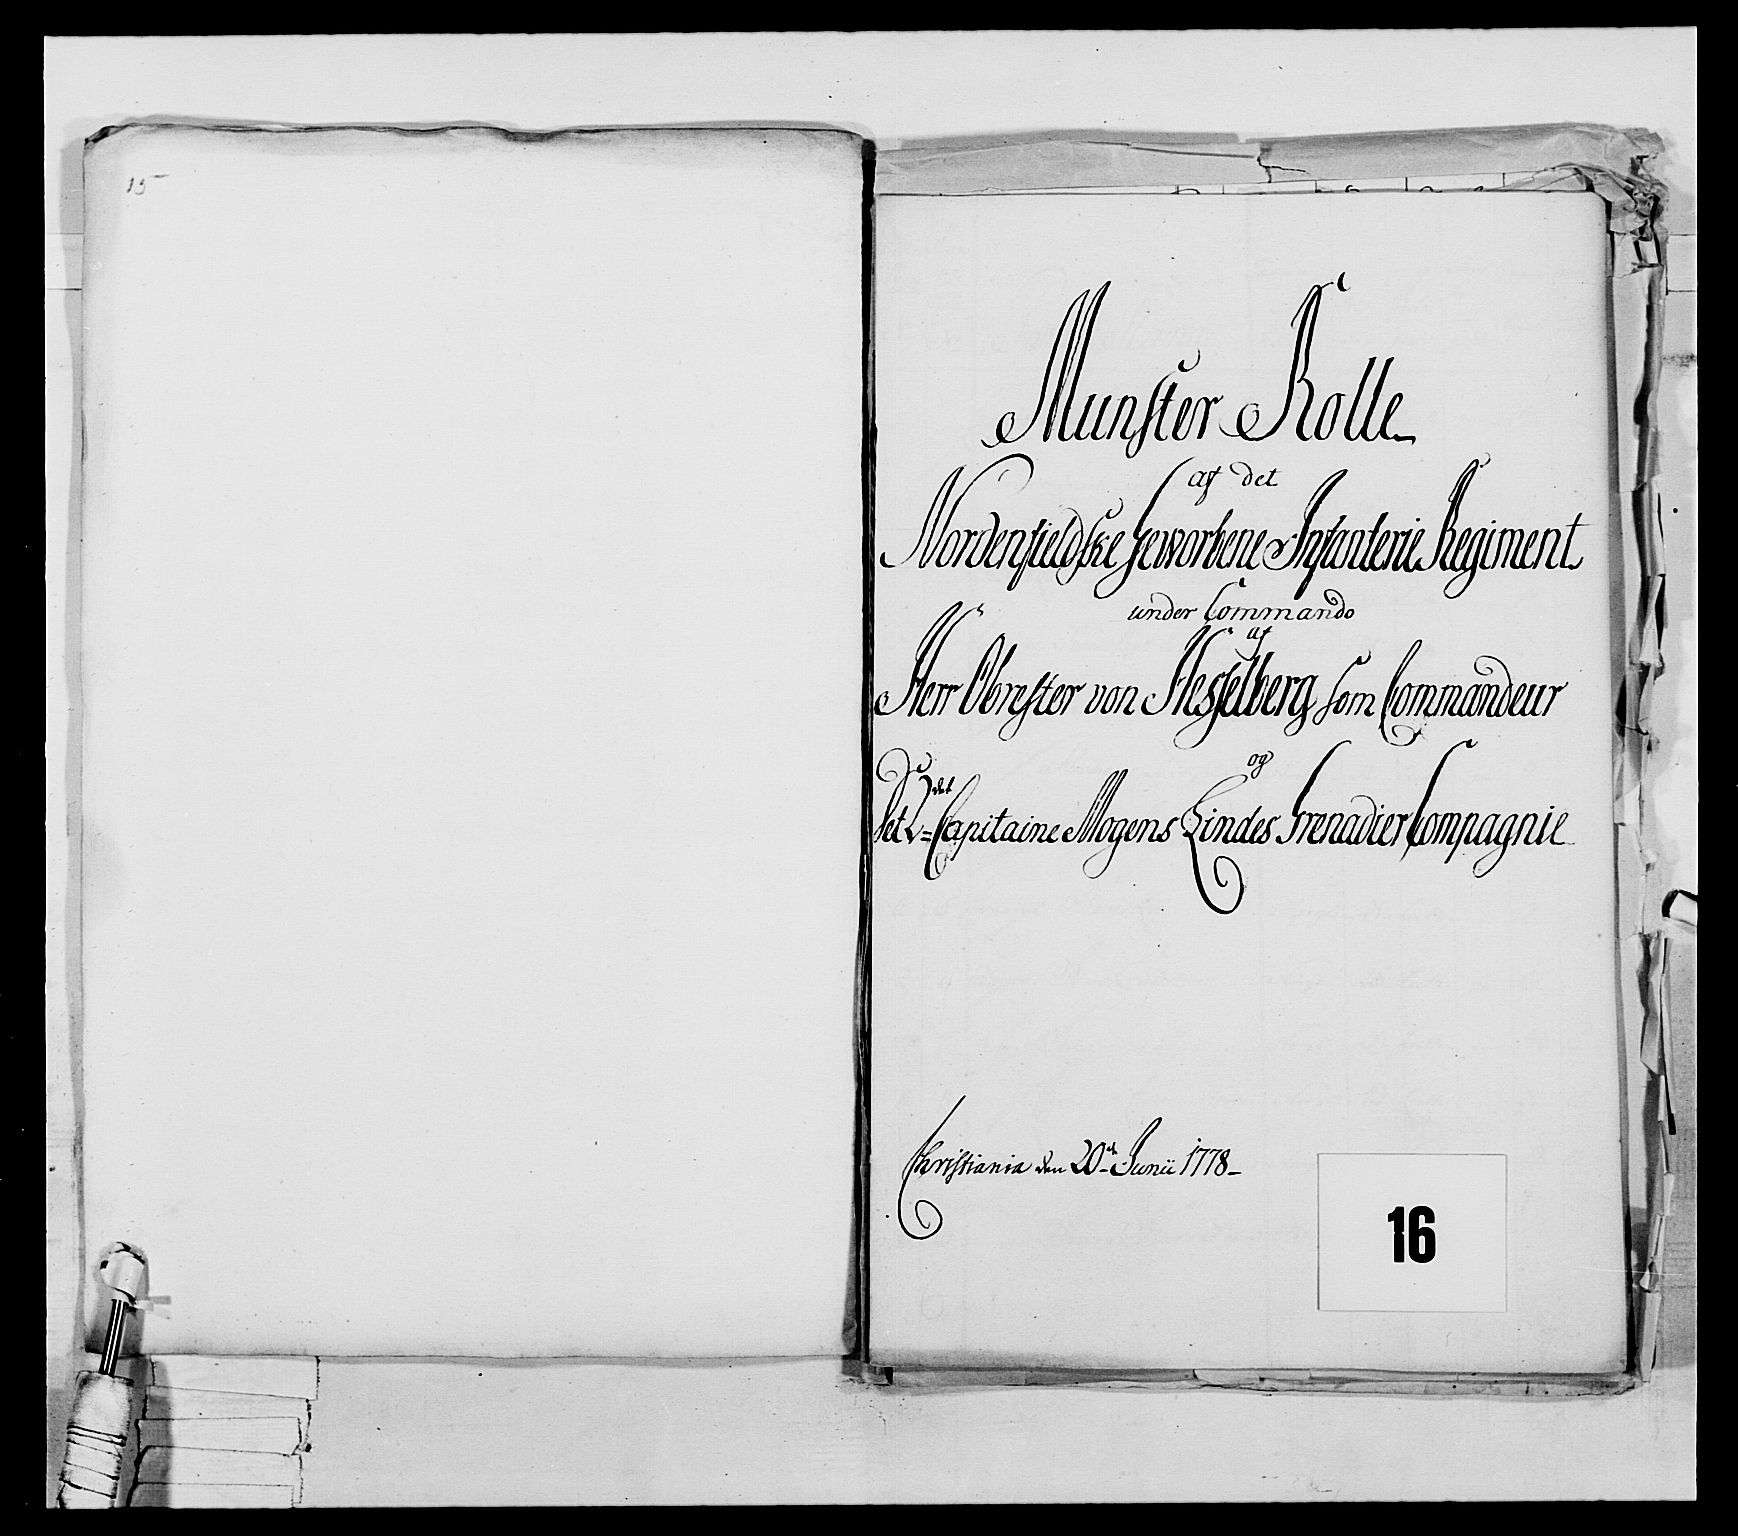 15
Munster Rolle
af det
Nordenfieldske Geworbene Infanterie Regiment
under Commando
af
Herr Obrester von Hesselberg som Commandeur
og
Capitaine Mogens Lindes Grenadier Compagnie
Christiania den 20de Junii 1778
16